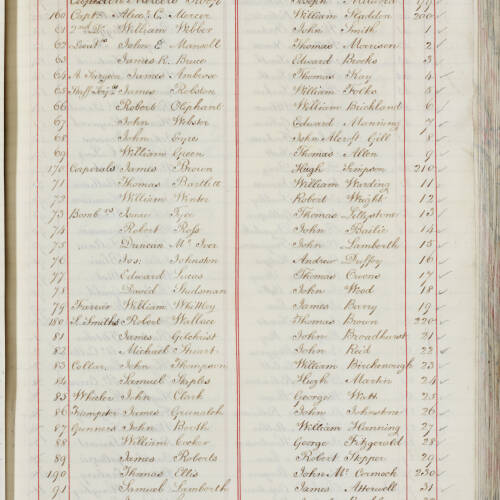 Captain Mercers Troop
160 Captn Alexr C. Mercer
61 2nd Do William Webber
62 Lieuts John E Maxwell
63 James R. Bruce
64 A. Surgeon James Ambrose
65 Staff Serjts James Robston
66 Robert Oliphant
67 John Webster
68 John Eyres
69 William Queen
170 Corporals James Brown
71 Thomas Bartlett
72 William Winter
73 Bombrs Isaac Tyce
74 Robert Ross
75 Duncan Mc Iver
76 Jos: Johnston
77 Edward Lucas
78 David Studsman
79 Farrier William Whittley
180 S. Smiths Robert Wallace
81 James Gilchrist
82 Michael Stuart
83 Collar John Thompson
84 Samuel Steples
85 Wheeler John Clark
86 Trumpeter James Greenalgh
87 Gunners John Booth
88 William Cooker
89 James Roberts
190 Thomas Ellis
91 Samuel Lamborth
Joseph 99
William Haddon 200
John Smith 1
Thomas Morrison 2
Edward Brooks 3
Thomas Kay 4
William Folks 5
William Brickland 6
Edward Manning 7
John Alcroft Gill 8
Thomas Allen 9
Hugh Simpson 210
William Harding 11
Robert Wright 12
Thomas Lillystone 13
John Bailie 14
John Lamberth 15
Andrew Duffey 16
Thomas Owens 17
John Wood 18
James Barry 19
Thomas Brown 220
John Broadhurst 21
John Reid 22
William Birchenough 23
Hugh Martin 24
George Watt 25
John Johnstone 26
William Henning 27
George Fitzgerald 28
Robert Stepper 29
John Mc Cormock 230
James Atterwell 31